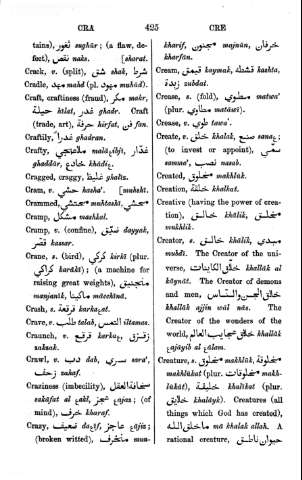 CRA 425 CRE
tains), ثغور sughūr; (a flaw, de-
fect), نقص naks. [sharat.
Crack, v. (split), شق shak, شرط
Cradle, مهد mahd (pl. مهود muhūd).
Craft, craftiness (fraud), مكر makr,
حيلة hīlat, غدر ghadr. Craft
(trade, art), حرفة hirfat, فن fan.
Craftily, غدراً ghadran.
Crafty, غدّار
ghaddār, خادع
Cragged, craggy, غليظ ghalīz.
Cram, v. حشي hasha'. [muhshī.
Crammed,
Cramp, مشكل mashkal.
Cramp, v. (confine), ضيّق dayyak,
قصر kassar.
Crane, s. (bird), كركي kirkī (plur.
كراكي karākī); (a machine for
raising great weights), منجنيق
manjanīk,
Crash, s. قرقعة
Crave, v. طلب talab, التمس iltamas.
Craunch, v. قرقع
Crawl, v. دب dab, سري sara',
زحف zahaf.
Craziness (imbecility), سخافة العقل
عجز (of
mind), خرف kharaf.
Crazy, ضعيف عاجز
(broken witted),
kharif, مجنون majnūn, خرفان
kharfān.
Cream, قيمق kaymak, قشطة kashta,
زبدة zubdat.
Crease, s. (fold), مطوي matwa'
(plur. مطاوي matāwī).
Crease, v. طوي tawa'.
Create, v. خلق khalak, صنع
(to invest or appoint), سمّي
samma', نصب nasab.
Created, مخلوق makhlūk.
Creation, خلقة khalkat.
Creative (having the power of crea-
tion), خالق khālik,
mukhlik.
Creator, s. خالق khālik, مبدي
mubdī. The Creator of the uni-
verse, خلاق الكاينات khallāk al
kāynāt. The Creator of demons
and men, خلاق الجن والناس
khallāk ajjin wāl nās. The
Creator of the wonders of the
world, خلاق عجايب العالم khallāk
Creature, s. مخلوق makhlūk, مخلوقة
makhlūkat (plur. مخلوقات makh-
lūkāt), خليقة khalīkat (plur.
خلايق khalāyk). Creatures (all
things which God has created),
ما خلق الله mā khalak allah. A
rational creature, حيوان ناطق